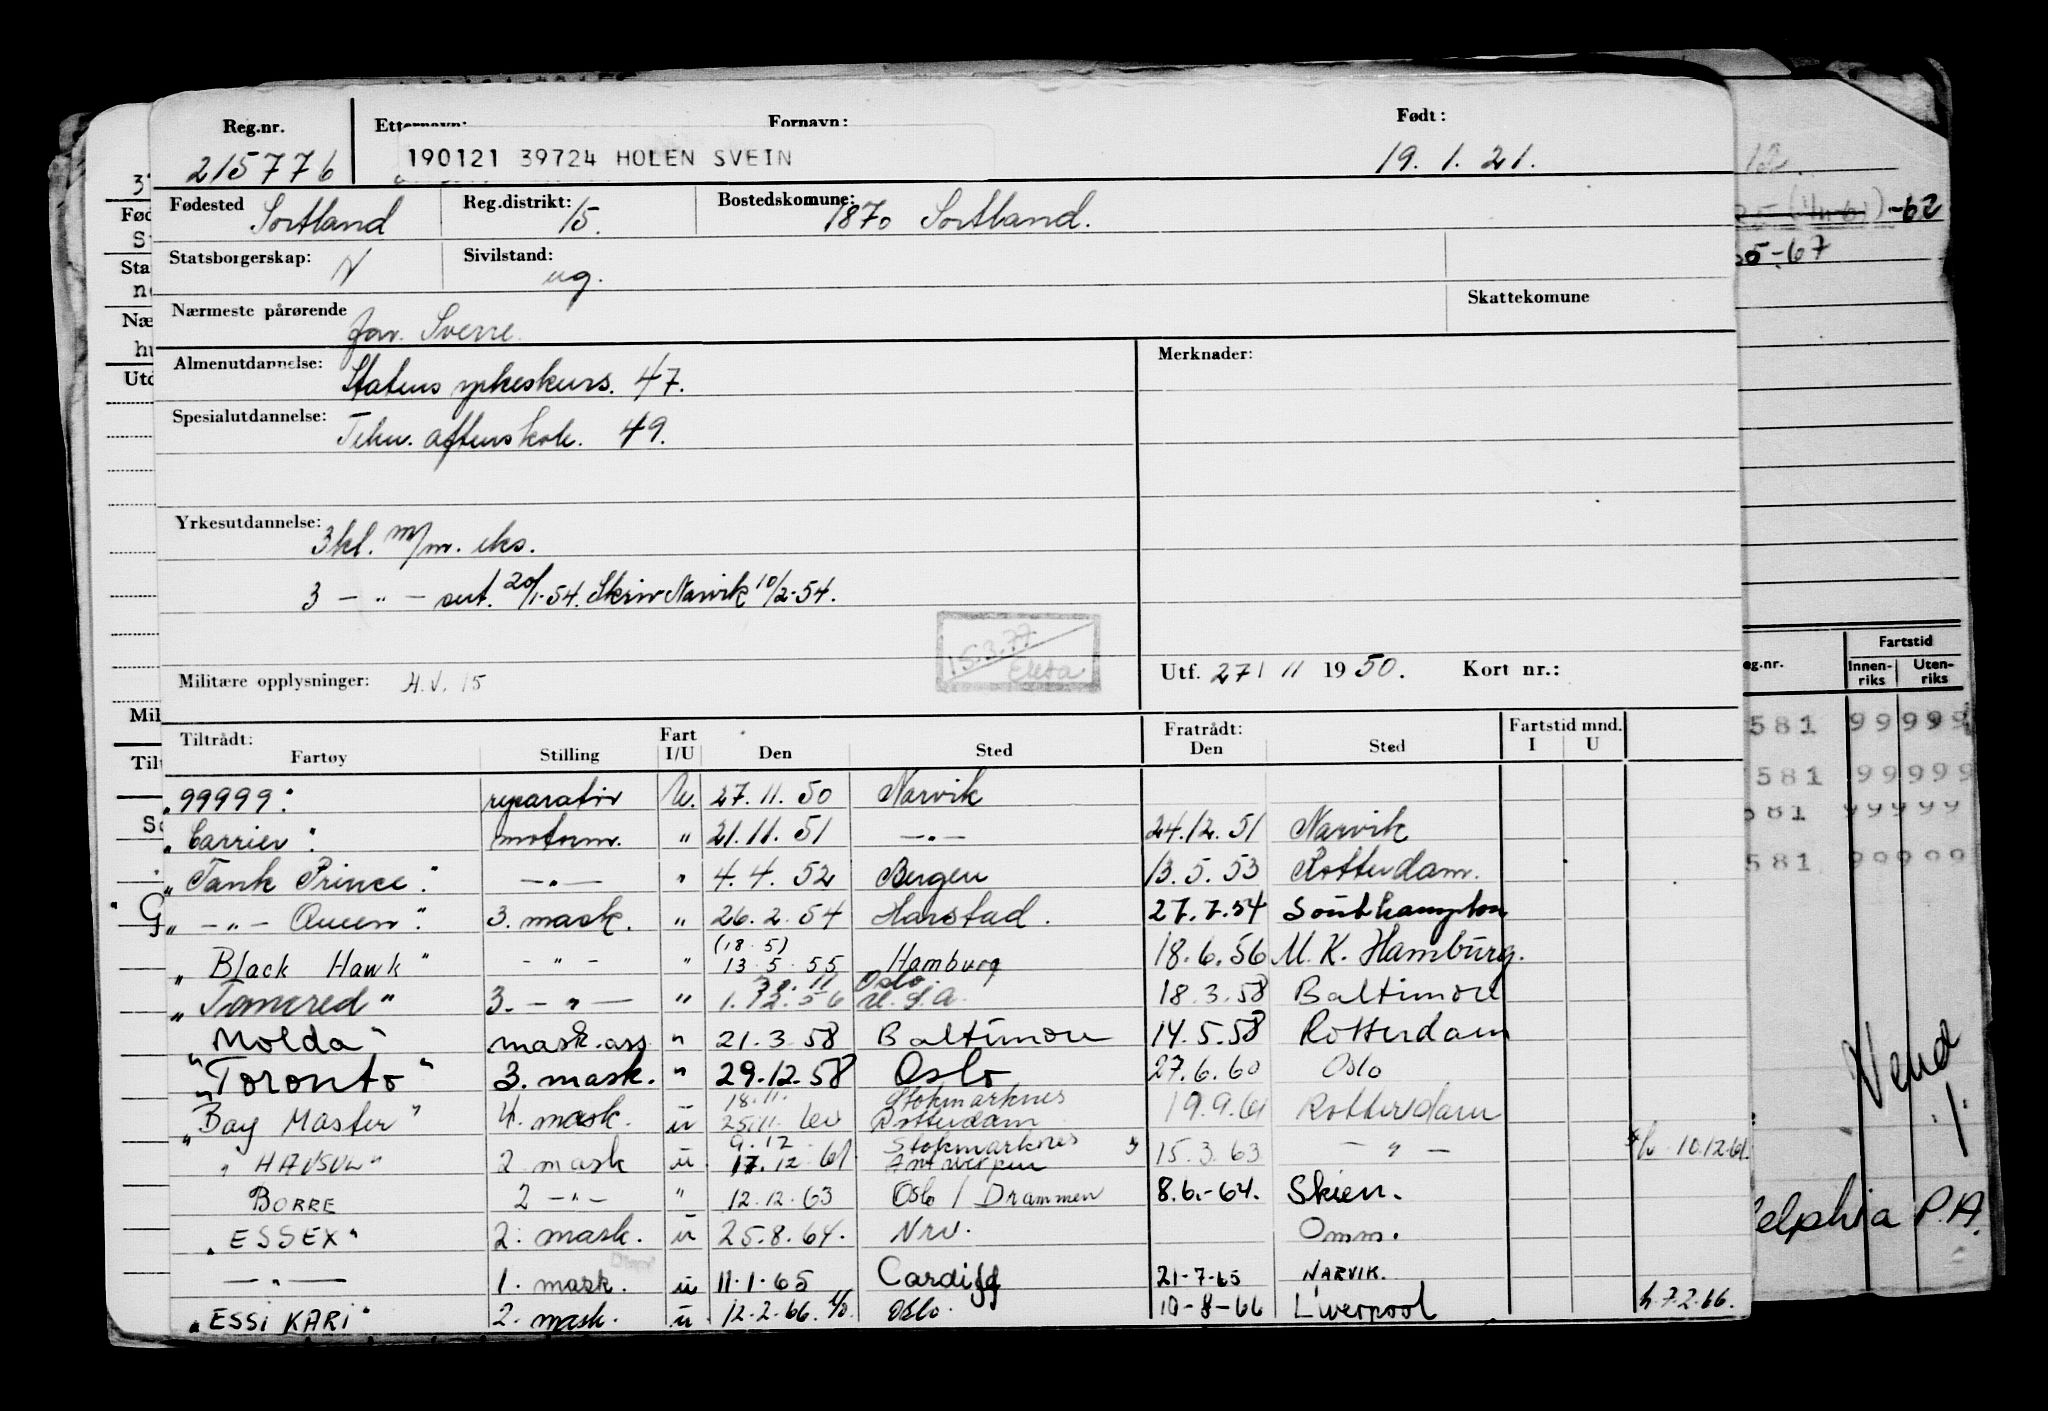 Reg.nr. Etternavn: Fornavn: Født:
215776 190121 39724 HOLEN SVEIN 19.1.21.
Fødested Sortland Reg.distrikt: 15. Bostedskomune: 1870 Sortland.
Statsborgerskap: N Sivilstand: ug.
Nærmeste pårørende Sverre. Skattekomune
Almenutdannelse: Statens yrkeskurs. 47. Merknader:
Spesialutdannelse: Tekn. aftenskole. 49.
Yrkesutdannelse: 3kl. m/m. eks.
3 — " — sert. 20/1-54. Skriv Narvik 10/2-54.
15.3.77
Militære opplysninger: H.V. 15 Utf. 27/11 1950. Kort nr.:
Tiltrådt: Fart Fratrådt: Fartstid mnd.
Fartøy Stilling I/U Den Sted Den Sted I U
"99999" reparatør U. 27.11.50 Narvik
"Carrier" motorm. " 21.11.51 — " — 24.12.51 Narvik
"Tank Prince" — " — " 4.4.52 Bergen 13.5.53 Rotterdam.
" — " — Queen" 3. mask. " 26.2.54 Harstad. 27.7.54 Southampton
(18.5)
"Black Hawk" - " - " 13.5.55 Hamburg 18.6.56 M.K. Hamburg.
30.11 Oslo
"Tancred" 3. — " — " 1.12.56 U.S.A. 18.3.58 Baltimore
"Molda" mask.ass " 21.3.58 Baltimore 14.5.58 Rotterdam
"Toronto" 3. mask. " 29.12.58 Oslo 27.6.60 Oslo
18.11. Stokmarknes
"Bay Master" 4. mask. u 25.11.60 Rotterdam 19.9.61 Rotterdam
9.12 Stokmarknes
"HAUSUL" 2 mask u 17.12.61 Antwerpen 15.3.63 — " — 10.12.61.
BORRE 2 — " — " 12.12.63 Oslo / Drammen 8.6.-64. Skien.
"ESSEX" 2. mask. u 25.8.64. Nrv. Omm.
— " — 1. mask. u 11.1.65 Cardiff 21-7-65 NARVIK.
"ESSI KARI" 2. mask. u 12.2.66. Oslo. 10-8-66 Liverpool h.7.2.66.
12.
-62
5-67
Fartstid
eg.nr. Innen-riks Uten-riks
581 99999
581 99999
581 99999
581 99999
Vend
./.
elphia P.A.
Fød
Sta
Næ
Utd
Mil
Tilt